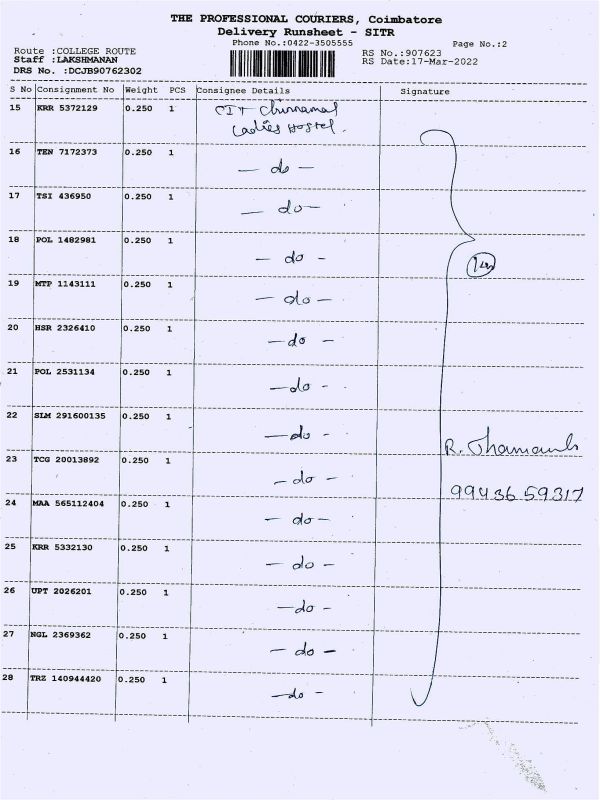 THE PROFESSIONAL COURIERS, Coimbatore
Delivery Runsheet - SITR
Phone No.:0422-3505555
Page No.:2
Route :COLLEGE ROUTE
Staff :LAKSHMANAN
DRS No. :DCJB90762302
RS No.:907623
RS Date:17-Mar-2022
S No Consignment No Weight PCS Consignee Details Signature
15 KRR 5372129 0.250 1 CIT Chinnamal
Ladies Hostel.
16 TEN 7172373 0.250 1 — do —
17 TSI 436950 0.250 1 — do —
18 POL 1482981 0.250 1 — do -
19 MTP 1143111 0.250 1 — do —
20 HSR 2326410 0.250 1 — do —
21 POL 2531134 0.250 1 — do -
22 SLM 291600135 0.250 1 — do -
R.
23 TCG 20013892 0.250 1 — do —
99436 59317
24 MAA 565112404 0.250 1 — do —
25 KRR 5332130 0.250 1 — do —
26 UPT 2026201 0.250 1 — do —
27 NGL 2369362 0.250 1 — do —
28 TRZ 140944420 0.250 1 — do -